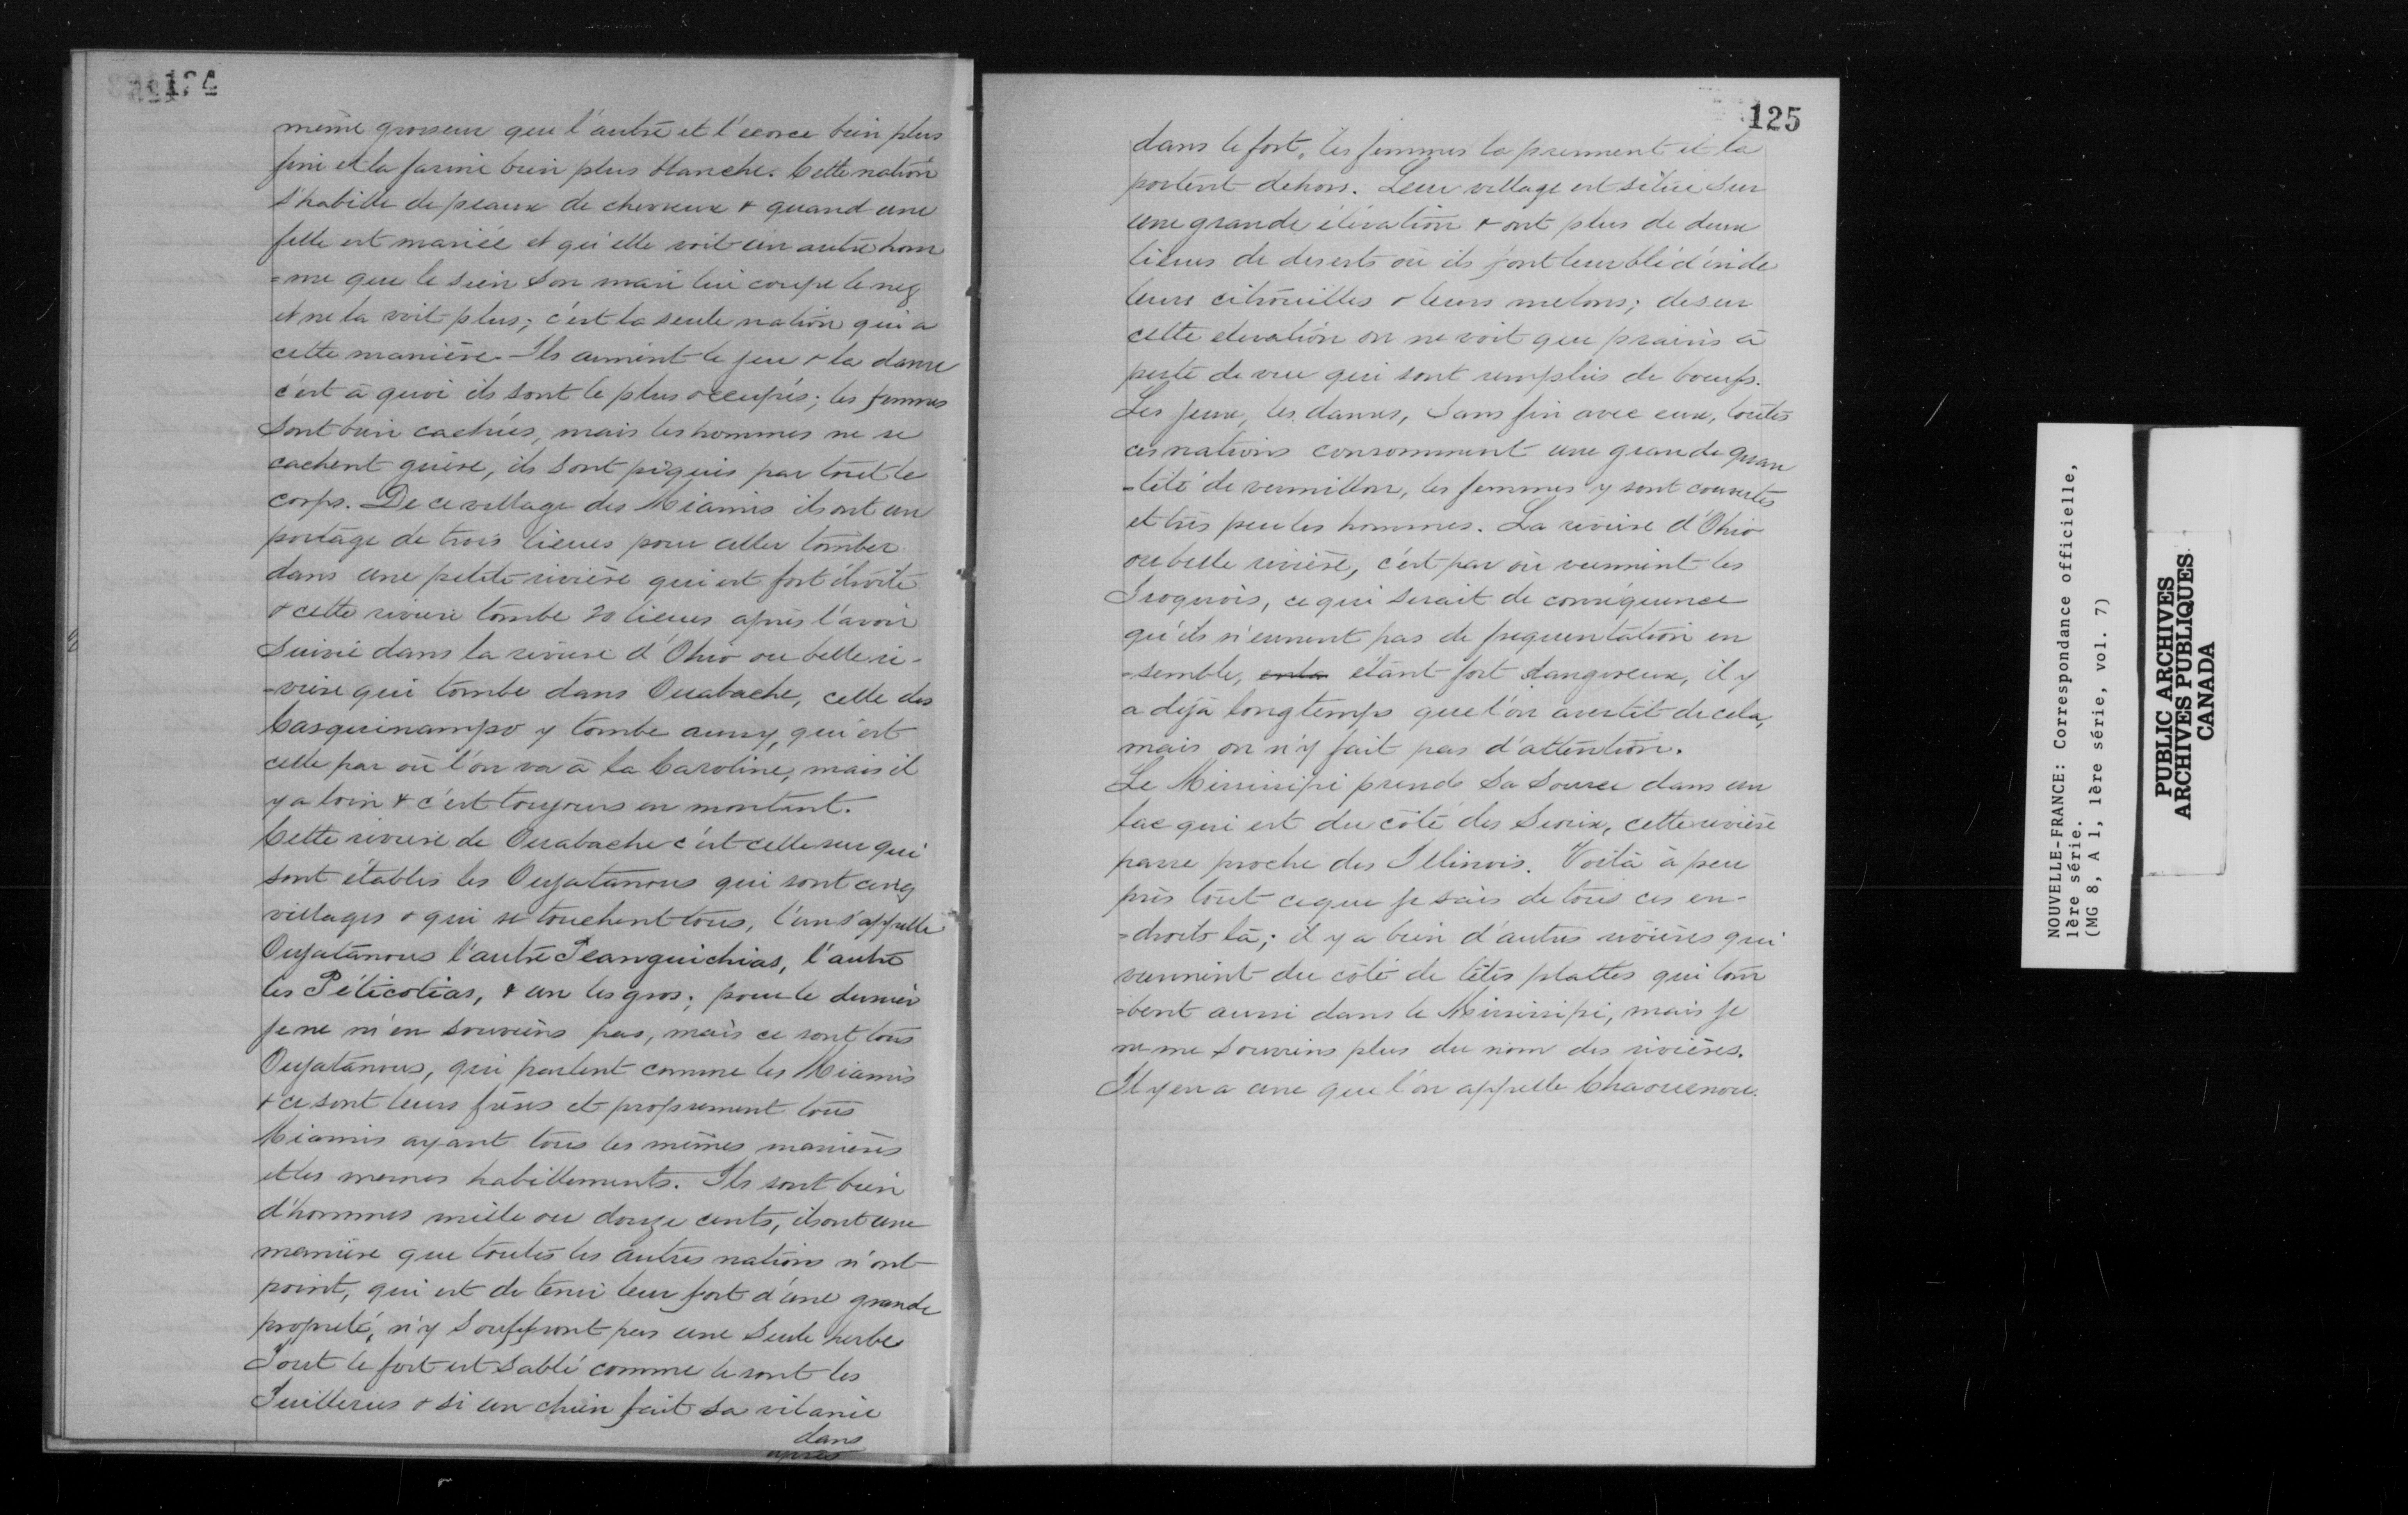 124
même grosseur que l'autre et l'ecorce bien plus
fine et la farine bien plus blanche. Cette nation
s'habille de peaux de chevreux & quand une
fille est mariée et qu'elle voit un autre hom
=me que le sien son mari lui coupe le nez
et ne la voit plus; c'est la seule nation qui a
cette manière. Ils aiment le jeu & la danse
c'est à quoi ils sont le plus occupés; les femmes
sont bien cachées, mais les hommes ne se
cachent guère, ils sont piqués par tout le
corps. De ce village des Miamis ils ont un
portage de trois lieues pour aller tomber
dans une petite rivière qui est fort étroite
& cette rivière tombe 20 lieues après l'avoir
suivie dans la rivière d'Ohio ou belle ri-
-vière qui tombe dans Ouabache, celle des
Casquinampo y tombe aussy, qui est
celle par où l'on va à la Caroline, mais il
y a loin & c'est toujours en montant.
Cette rivière de Ouabache c'est celle sur qui
sont établis les Ouyatanous qui sont cinq
villages & qui se touchent tous, l'un s'appelle
Ouyatanous l'autre Peanguichias, l'autre
les Péticotias, & un les gros; pour le dernier
je ne m'en souviens pas, mais ce sont tous
Ouyatanous, qui parlent comme les Miamis
& ce sont leurs frères et proprement tous
Miamis ayant tous les mêmes manières
et les memes habillements. Ils sont bien
d'hommes mille ou douze cents, ils ont une
manière que toutes les autres nations n'ont
point, qui est de tenir leur fort d'une grande
propreté, n'y souffront pas une seule herbe
Tout le fort est sablé comme le sont les
Tuilleries & si un chien fait sa vilanie
dans
après
125
dans le fort, les femmes la prennent et la
portent dehors. Leur village est situé sur
une grande élévation & ont plus de deux
lieues de deserts où ils font leur blé d'inde
leurs citrouilles & leurs melons; desur
cette elevation on ne voit que prairies à
perte de vue qui sont remplies de boeufs.
Les jeux, les danses, sans fin avec eux, toutes
ces nations consomment une grande quan
-tité de vermillon, les femmes y sont couvertes
et très peu les hommes. La rivière d'Ohio
ou belle rivière, c'est par où viennent les
Iroquois, ce qui serait de conséquence
qu'ils n'eussent pas de frequentation en
-semble, étant fort dangereux, il y
a déjà longtemps que l'on avertit de cela,
mais on n'y fait pas d'attention.
Le Missisipi prends sa source dans un
lac qui est du côté des Sioux, cette rivière
passe proche des Illinois. Voilà à peu
près tout ce que je sais de tous ces en-
=droits là; il y a bien d'autres rivières qui
viennent du côté de têtes plattes qui tom
=bent aussi dans le Missisipi, mais je
ne me souviens plus du nom des rivières.
Il y en a une que l'on appelle Chaouenou.
NOUVELLE-FRANCE: Correspondance officielle,
1ère série.
(MG 8, A 1, 1ère série, vol. 7)
PUBLIC ARCHIVES
ARCHIVES PUBLIQUES
CANADA